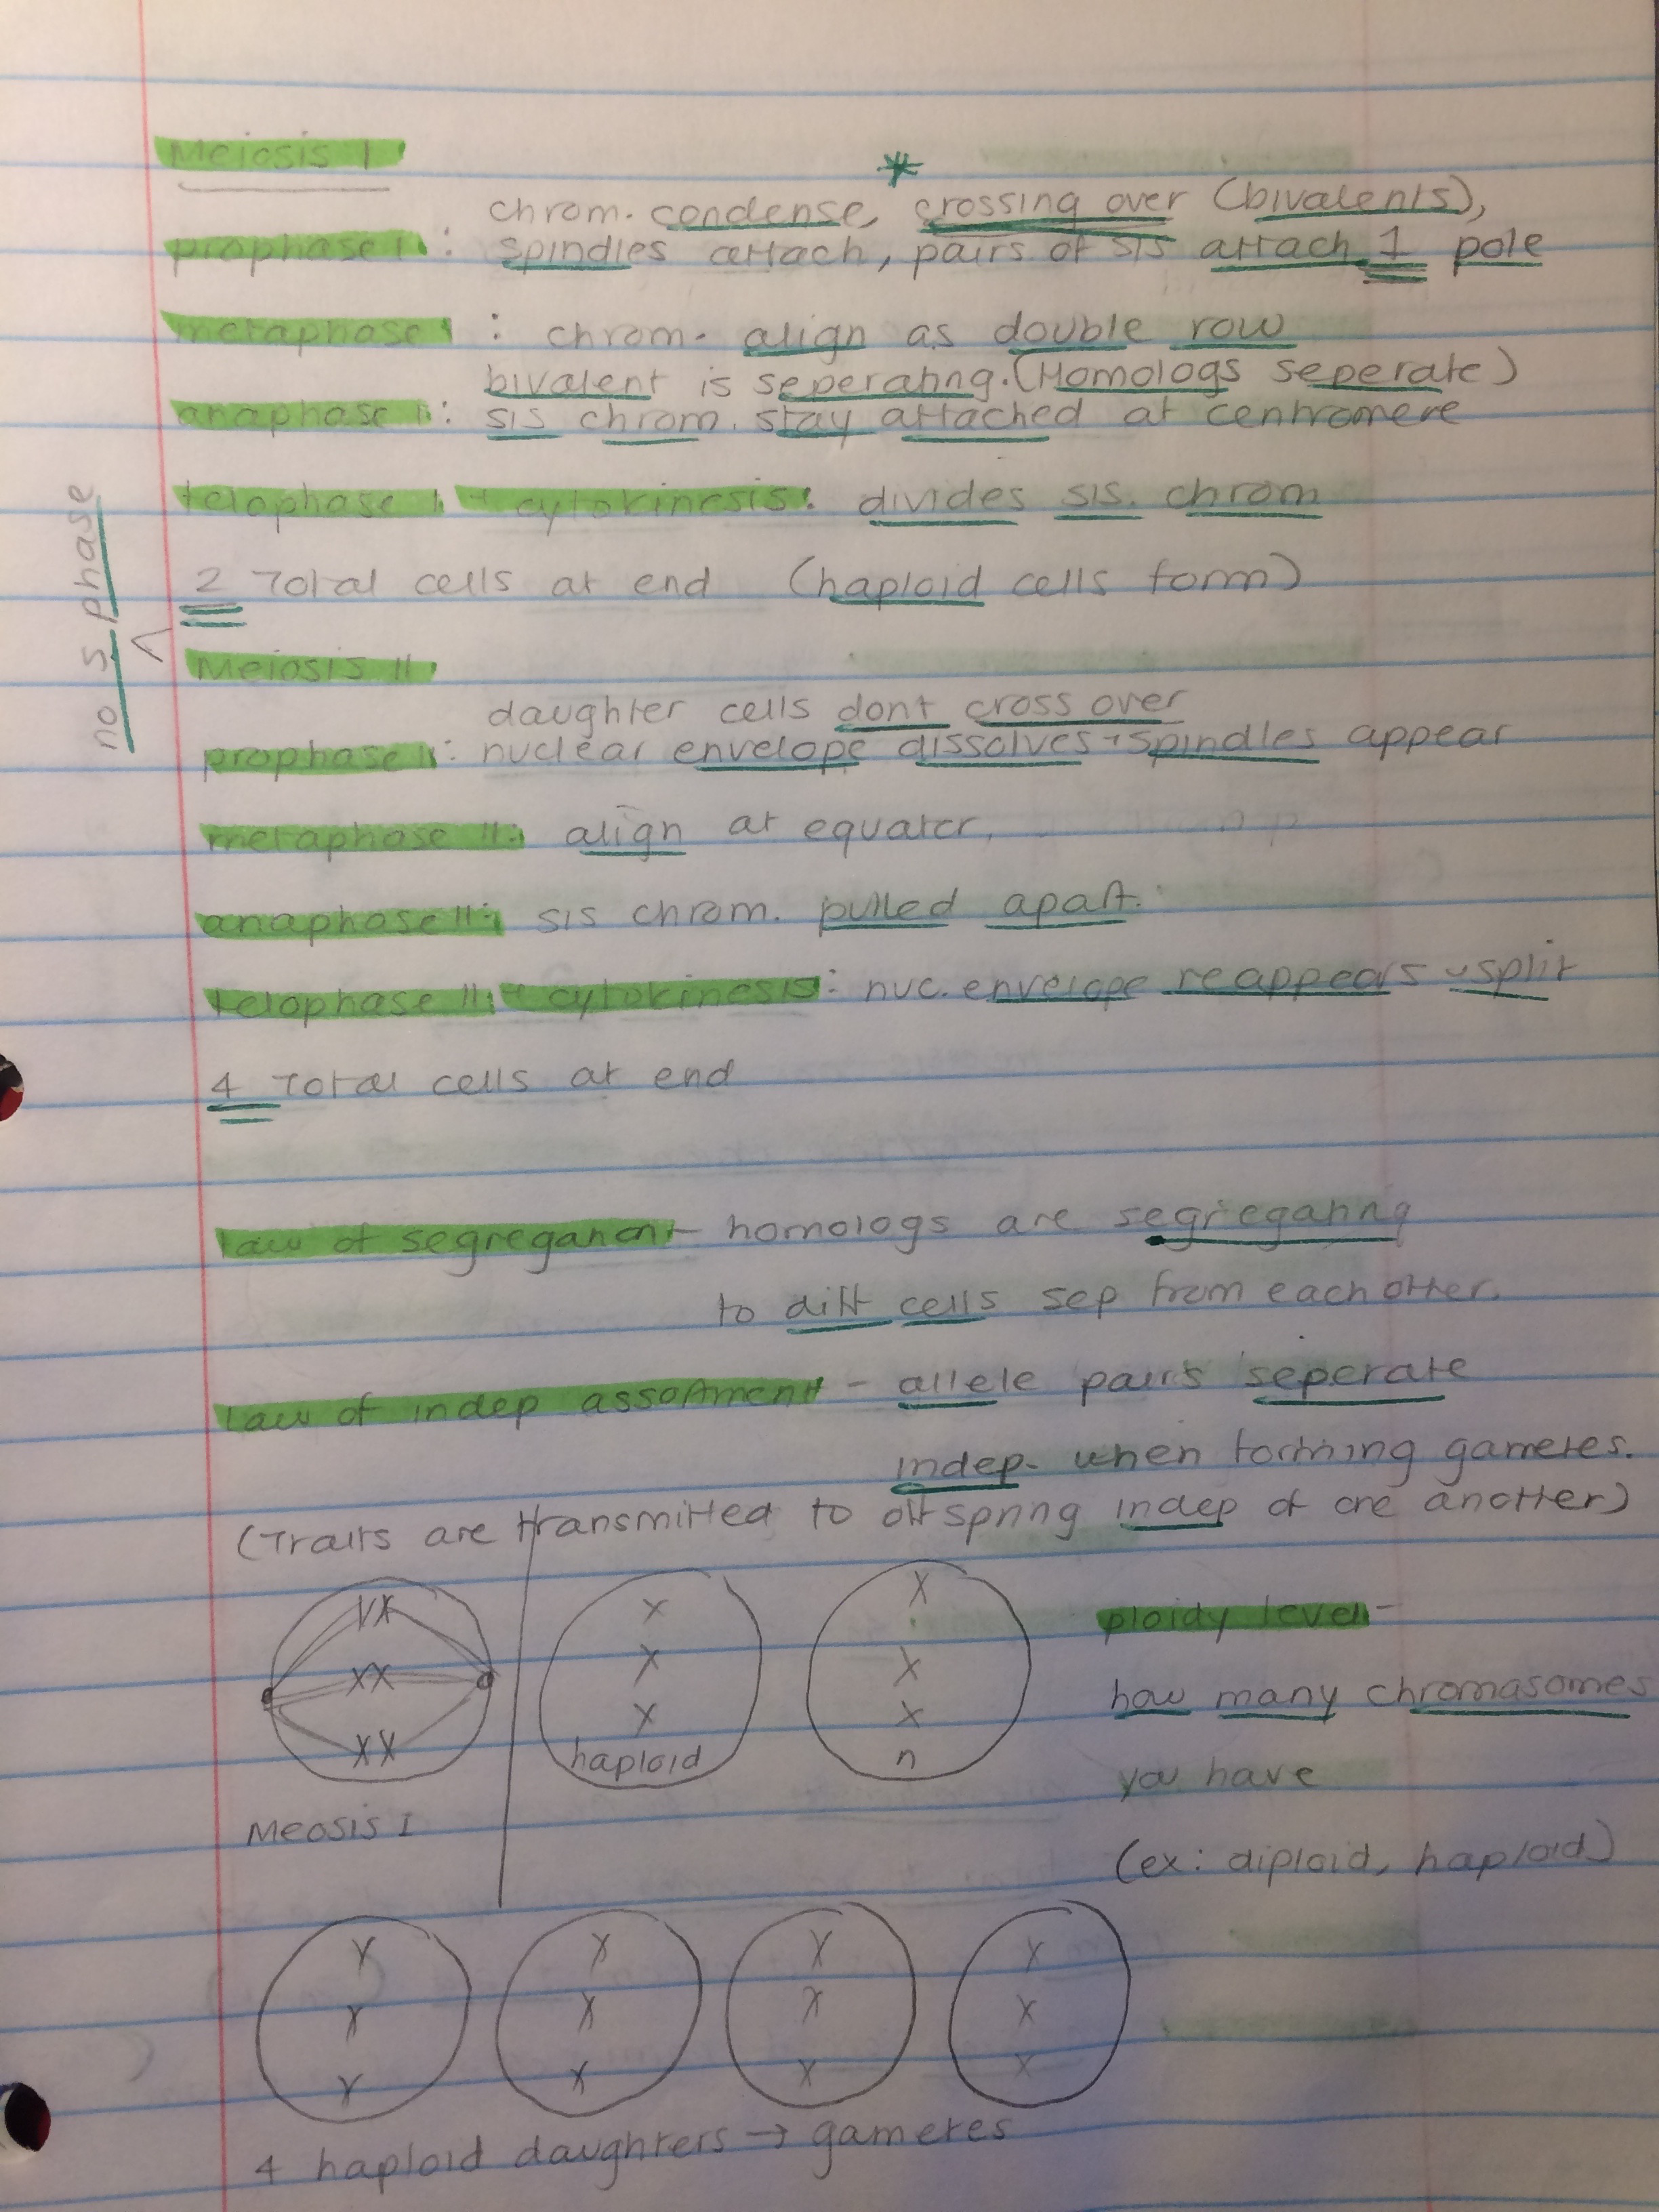 Meiosis I
*
chrom. condense, crossing over (bivalents),
prophase I: spindles attach, pairs of sis attach 1 pole
metaphase I: chrom. align as double row
bivalent is seperating. (Homologs seperate)
anaphase I: sis chrom. stay attached at centromere
telophase I + cytokinesis: divides sis. chrom
2 Total cells at end (haploid cells form)
no S phase
Meiosis II
daughter cells dont cross over
prophase II: nuclear envelope dissolves + spindles appear
metaphase II: align at equator.
anaphase II: sis chrom. pulled apart.
telophase II + cytokinesis: nuc. envelope reappears split
4 Total cells at end
law of segregation - homologs are segregating
to diff cells sep from each other.
Law of indep assortment - allele pairs seperate
indep. when forming gametes.
(Traits are transmitted to offspring indep of one another)
XX
XX
XX
Meosis I
X
X
X
haploid
X
X
X
n
ploidy level -
how many chromasomes
you have
(ex: diploid, haploid)
X X X X
X X X X
X X X X
4 haploid daughters → gametes